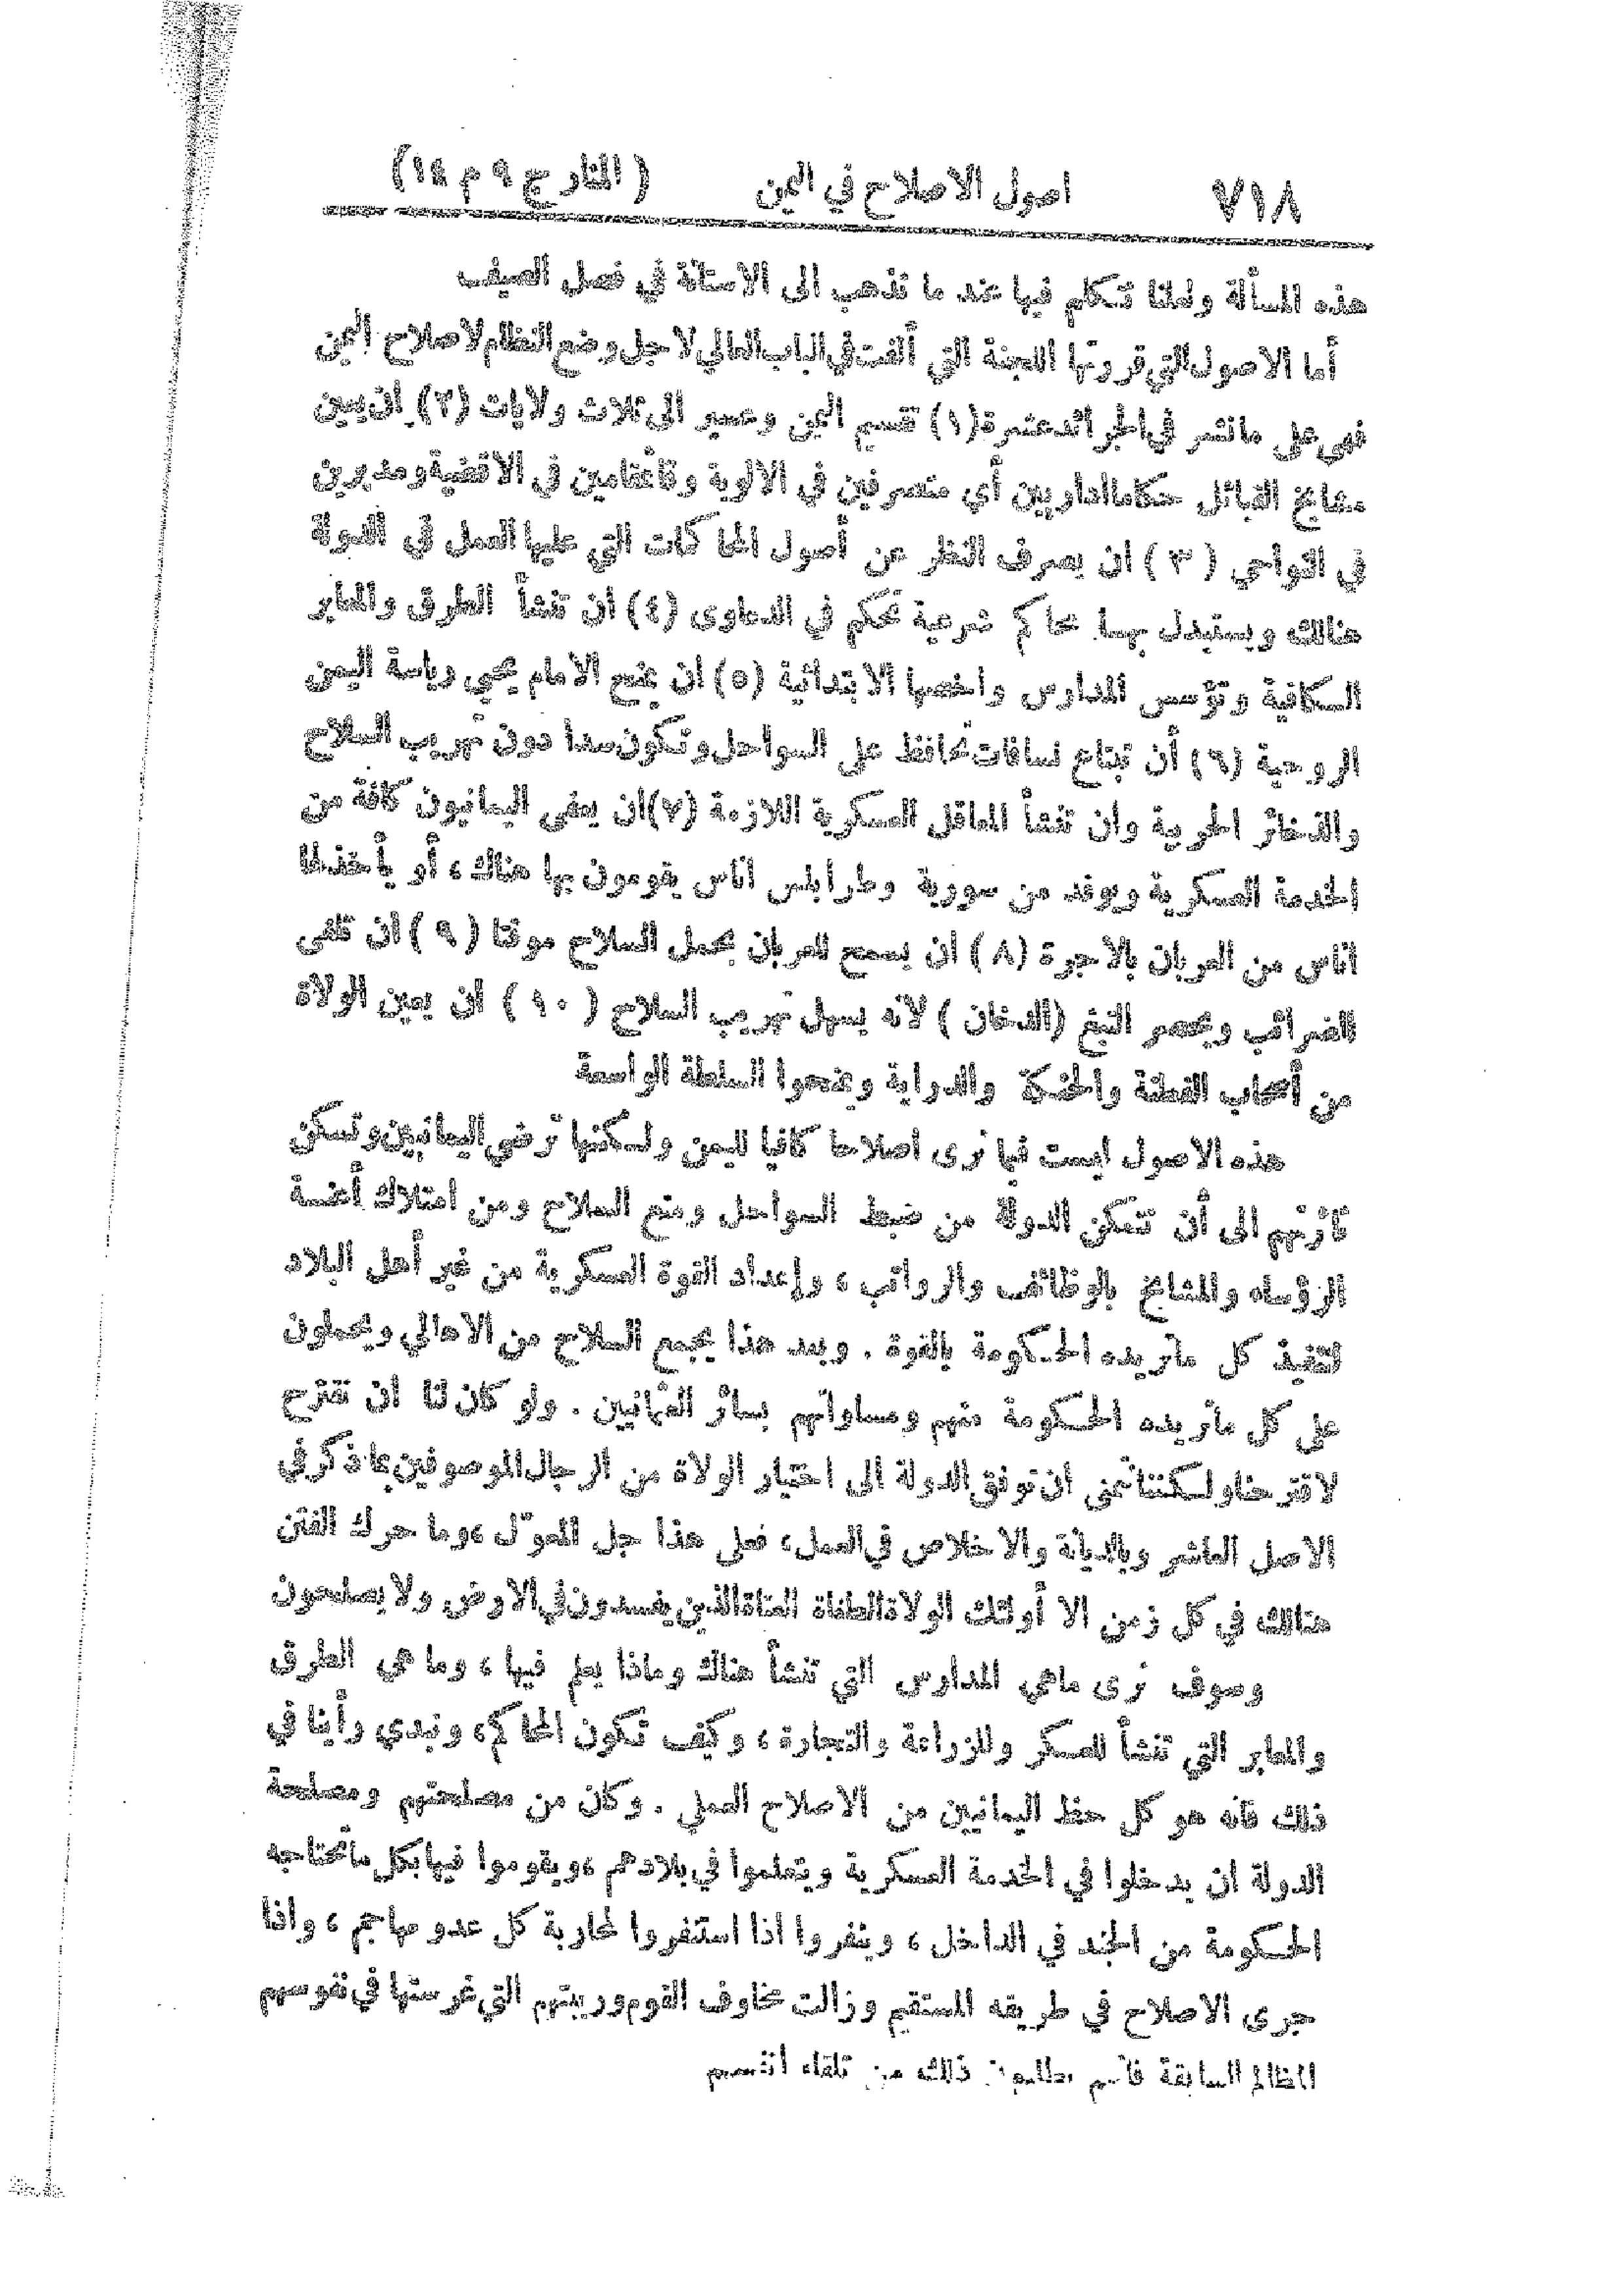 ٧١٨ اصول الاصلاح في اليمن ( المنار ج ٩ م ١٤)
هذه المسألة ولعلنا نتكلم فيها عند ما نذهب الى الاستانة في فصل الصيف
أما الاصول التي قررتها اللجنة التي ألفت في الباب العالي لاجل وضع النظام لاصلاح اليمن
فهي على ما نشر في الجرائد عشرة (١) تقسيم اليمن وعسير الى ثلاث ولايات (٢) ان يعين
مشايخ القبائل حكاما اداريين أي متصرفين في الالوية وقائمقامين في الاقضية ومديرين
في النواحي (٣) ان يصرف النظر عن أصول المحاكمات التي عليها العمل في الدولة
هنالك ويستبدل بها محاكم شرعية تحكم في الدعاوى (٤) ان تنشأ الطرق والمعابر
الكافية وتؤسس المدارس واخصها الابتدائية (٥) ان يمنح الامام يحيى رياسة اليمن
الروحية (٦) أن تبتاع نسافات تحافظ على السواحل وتكون سدا دون تهريب السلاح
والذخائر الحربية وان تنشأ المعاقل العسكرية اللازمة (٧) ان يعفى اليمانيون كافة من
الخدمة العسكرية ويوفد من سورية وطرابلس اناس يقومون بها هناك، أو يأخذ لها
اناس من العربان بالاجرة (٨) ان يسمح للعربان بحمل السلاح موقتا (٩) ان تلغى
الضرائب ويحصر التبغ (الدخان) لأنه يسهل تهريب السلاح (١٠) ان يعين الولاة
من أصحاب الفطنة والحنكة والدراية ويمنحوا السلطة الواسعة
هذه الاصول ليست فيما نرى اصلاحا كافيا لليمن ولكنها ترضي اليمانيين وتسكن
ثائرتهم الى أن تتمكن الدولة من ضبط السواحل ومنع السلاح ومن امتلاك أعنة
الرؤساء والمشايخ بالوظائف والرواتب، وإعداد القوة العسكرية من غير أهل البلاد
لتنفيذ كل ما تريده الحكومة بالقوة. وبعد هذا يجمع السلاح من الاهالي ويحملون
على كل ما تريده الحكومة منهم ومساواتهم بسائر العثمانيين. ولو كان لنا ان نقترح
لاقترحنا ولكننا نتمنى ان توفق الدولة الى اختيار الولاة من الرجال الموصوفين بما ذكر في
الاصل العاشر وبالديانة والاخلاص في العمل، فعلى هذا جل المعوّل، وما حرك الفتن
هنالك في كل زمن الا أولئك الولاة الطغاة العتاة الذين يفسدون في الارض ولا يصلحون
وسوف نرى ما هي المدارس التي تنشأ هناك وماذا يعلم فيها، وما هي الطرق
والمعابر التي تنشأ للعسكر وللزراعة والتجارة، وكيف تكون المحاكم، ونبدي رأينا في
ذلك فانه هو كل حظ اليمانيين من الاصلاح العملي. وكان من مصلحتهم ومصلحة
الدولة ان يدخلوا في الخدمة العسكرية ويتعلموا في بلادهم، ويقوموا فيها بكل ما تحتاجه
الحكومة من الجند في الداخل، وينفروا اذا استنفروا لمحاربة كل عدو مهاجم، واذا
جرى الاصلاح في طريقه المستقيم وزالت مخاوف القوم وريبتهم التي غرستها في نفوسهم
المظالم السابقة فانهم يطلبون ذلك من تلقاء انفسهم